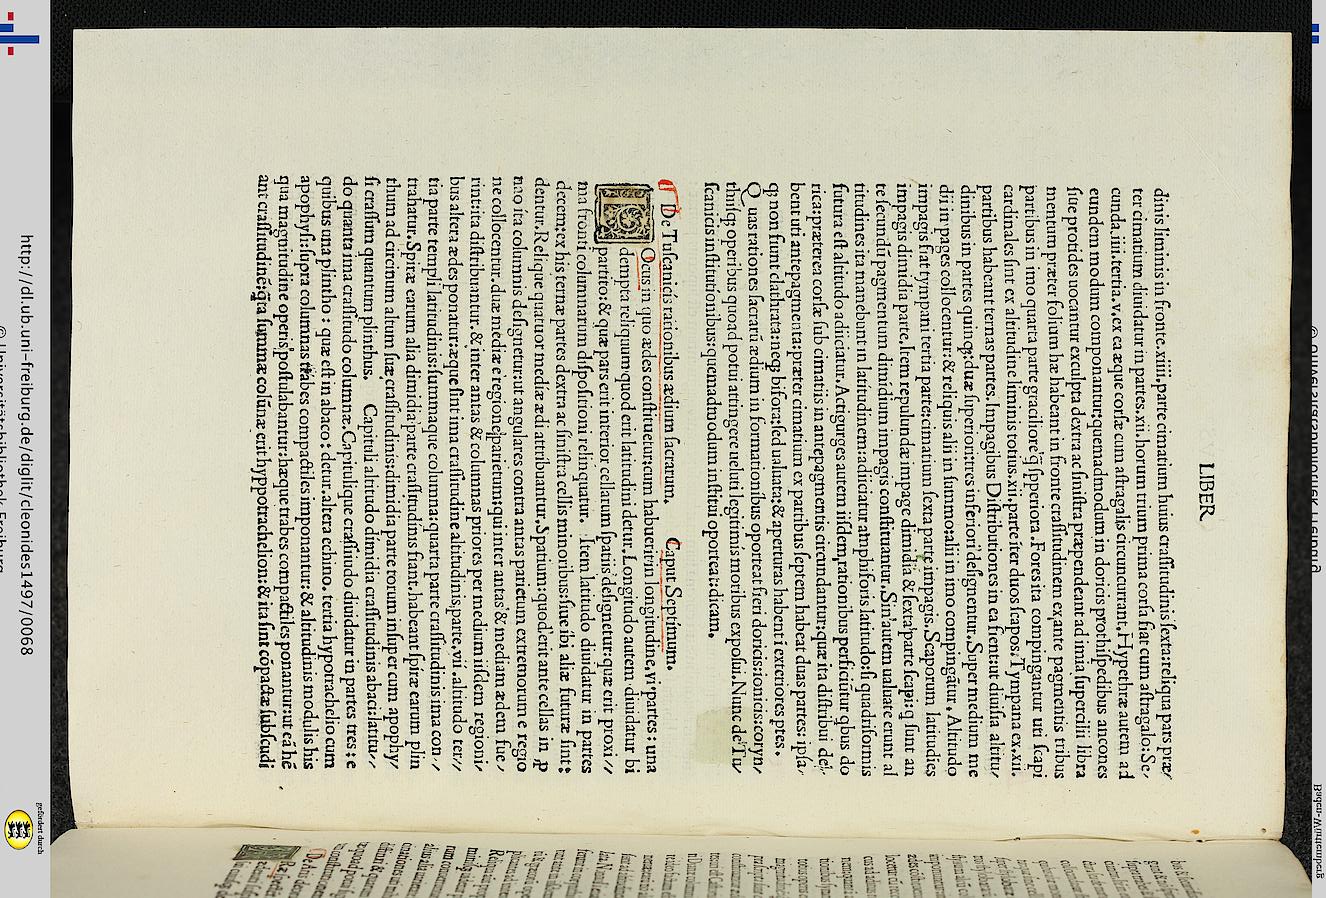 LIBER
dinis liminis in fronte.xiiii.parte cimatium huius crassitudinis sexta:reliqua pars præ/
ter cimatium diuidatur in partes.xii.horum trium prima corsa fiat cum astragalo:Se/
cunda.iiii.tertia.v.ex eæque corsæ cum astragalis circuncurrant.Hyperthræ autem ad
eundem modum componantur:quemadmodum.in doricis prothispedibus ancones
siue protides uocantur exculpta dextra ac sinistra præpendeant ad imia supercilii libra
mentum præter folium hæ habeant in fronte crassitudinem ex ante pagmentis tribus
partibus in imo quarta parte graciliore q̃ superiora.Fores ita compingantur uti scapi
cardinales sint ex altitudine liminis totius.xii.parte iter duos scapos:Tympana ex.xii.
partibus habeant ternas partes.Impagibus Distributiones ita fient:ut diuisa altitu/
dinibus in partes quinq;:duæ superiori:tres inferiori designentur.Super medium me
di in pages collocentur:& reliquis alii in summo:alii in imo compingātur.Altitudo
impagis fiat tympani tertia parte:cimatium sexta parte impagis.Scaporum latitudies
impagis dimidia parte.Item repulundæ impage dimidia & sexta parte scapi:q sunt an
te secundū pagmentum dimidium impagis constituantur.Sin autem ualuate erunt al
titudines ita manebunt in latitudinem:adiiciatur amphiforis latitudo:si quadriformis
futura est altitudo adiiciatur.Actigurges autem iisdem rationibus perficiūtur qbus do
rica:præterea corsæ sub cimatiis in antepagmentis circundantur:quæ ita distribui de/
bent uti antepagmenta:præter cimatium ex partibus septem habeat duas partes: ipsa/
q; non fiunt clathrata:neq; bifora:sed ualuata:& aperturas habent ī exteriores ptes.
Quas rationes sacrarū ædium in formationibus oporteat fieri doricis:ionicis:coryn/
thiisq; operibus quoad potui attingere ueluti legitimis moribus exposui.Nunc de Tu/
scanicis institutionibus:quemadmodum institui oporteat:dicam.
De Tuscanicis rationibus ædium sacrarum. Caput Septimum.
LOcus in quo ædes constituetur:cum habuerit in longitudine.vi.partes: una
dempta reliquum quod erit latitudini detur.Longitudo autem diuidatur bi
partito:& quæ pars erit interior cellarum spatiis designetur:quæ erit proxi//
ma fronti columnarum dispositioni relinquatur. Item latitudo diuidatur in partes
decem:ex his ternæ partes dextra ac sinistra cellis minoribus:siue ibi aliæ futuræ sint:
dentur.Relique quatuor mediæ ædi attribuantur.Spatium:quod erit ante cellas in p
nao ita columnis designetur:ut angulares contra antas parietum extremorum e regio
ne collocentur.duæ mediæ e regione parietum:qui inter antas & mediam ædem fue/
rint:ita distribuantur.& inter antas & columnas priores per medium iisdem regioni/
bus altera ædes ponatur:æque sint ima crassitudine altitudinis.parte.vii.altitudo ter//
tia parte templi latitudinis:summaque columna:quarta parte crassitudinis ima con//
trahatur.Spiræ earum alia dimidia parte crassitudinis fiant.habeant spiræ earum plin
thum ad circinum altum suæ crassitudinis:dimidia parte torum insuper cum apophy/
si crassum quantum plinthus. Capituli altitudo dimidia crassitudinis abaci:latitu//
do quanta ima crassitudo columnæ.Capitulique crassitudo diuidatur in partes tres: e
quibus una plintho : quæ est in abaco : detur.altera echino. tertia hypotrachelio cum
apophysi:supra columnas trabes compactiles imponantur:& altitudinis modulis his
qua magnitudine operis postulabantur:hæque trabes compactiles ponantur:ut eā hē
ant crassitudinē:q̃ta summæ colūnæ erit hyppotrachelion:& ita sint cōpactæ subscudi
http://dl.ub.uni-freiburg.de/diglit/cleonides1497/0068
gefördert durch